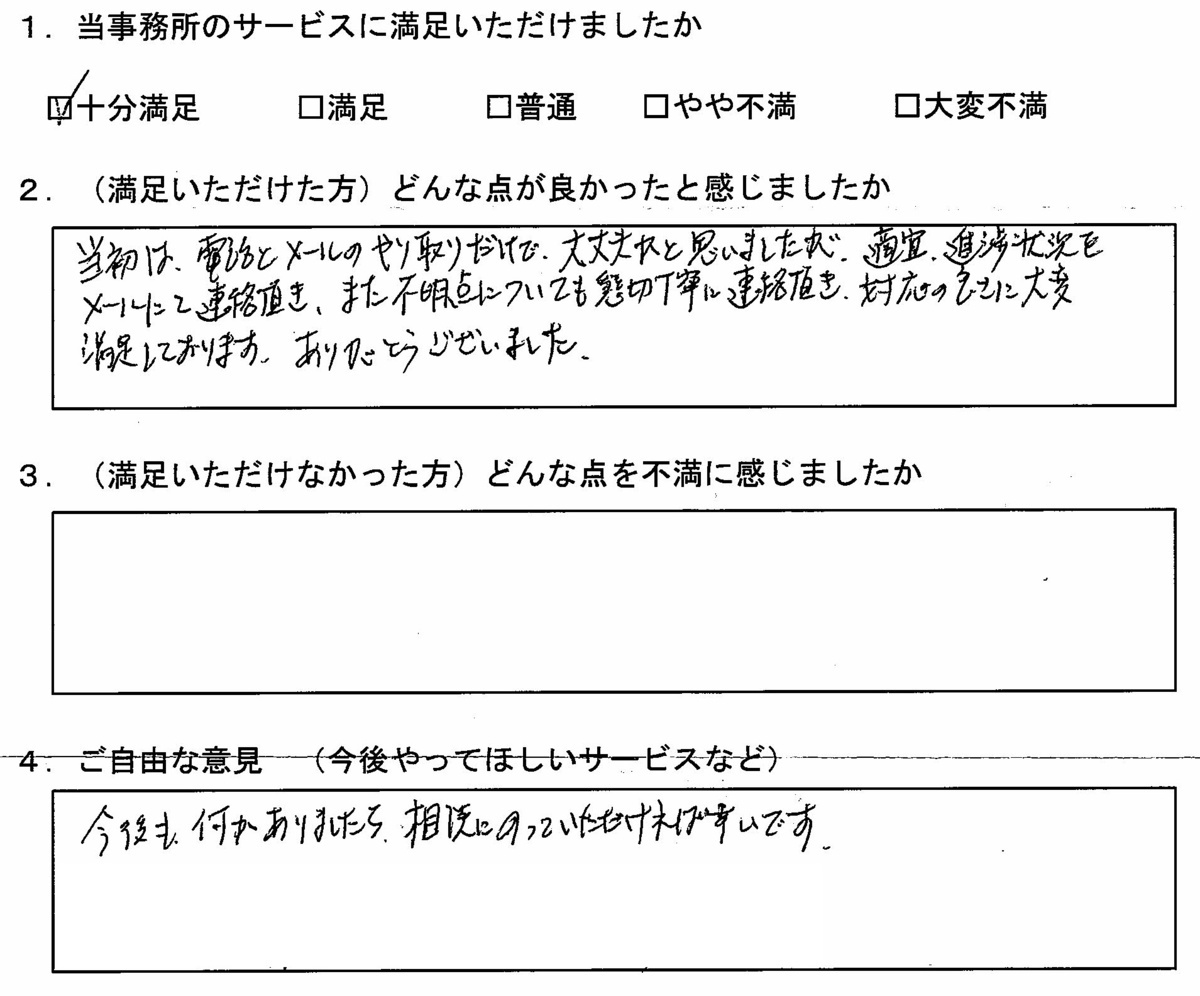 1．当事務所のサービスに満足いただけましたか
☑十分満足 □満足 □普通 □やや不満 □大変不満
2．（満足いただけた方）どんな点が良かったと感じましたか
当初は、電話とメールのやり取りだけで、大丈夫かと思いましたが、適宜、進捗状況を
メールにて連絡頂き、また不明点についても懇切丁寧に連絡頂き、対応の良さに大変
満足しております。ありがとうございました。
3．（満足いただけなかった方）どんな点を不満に感じましたか
4．ご自由な意見 （今後やってほしいサービスなど）
今後も、何かありましたら、相談にのっていただければ幸いです。